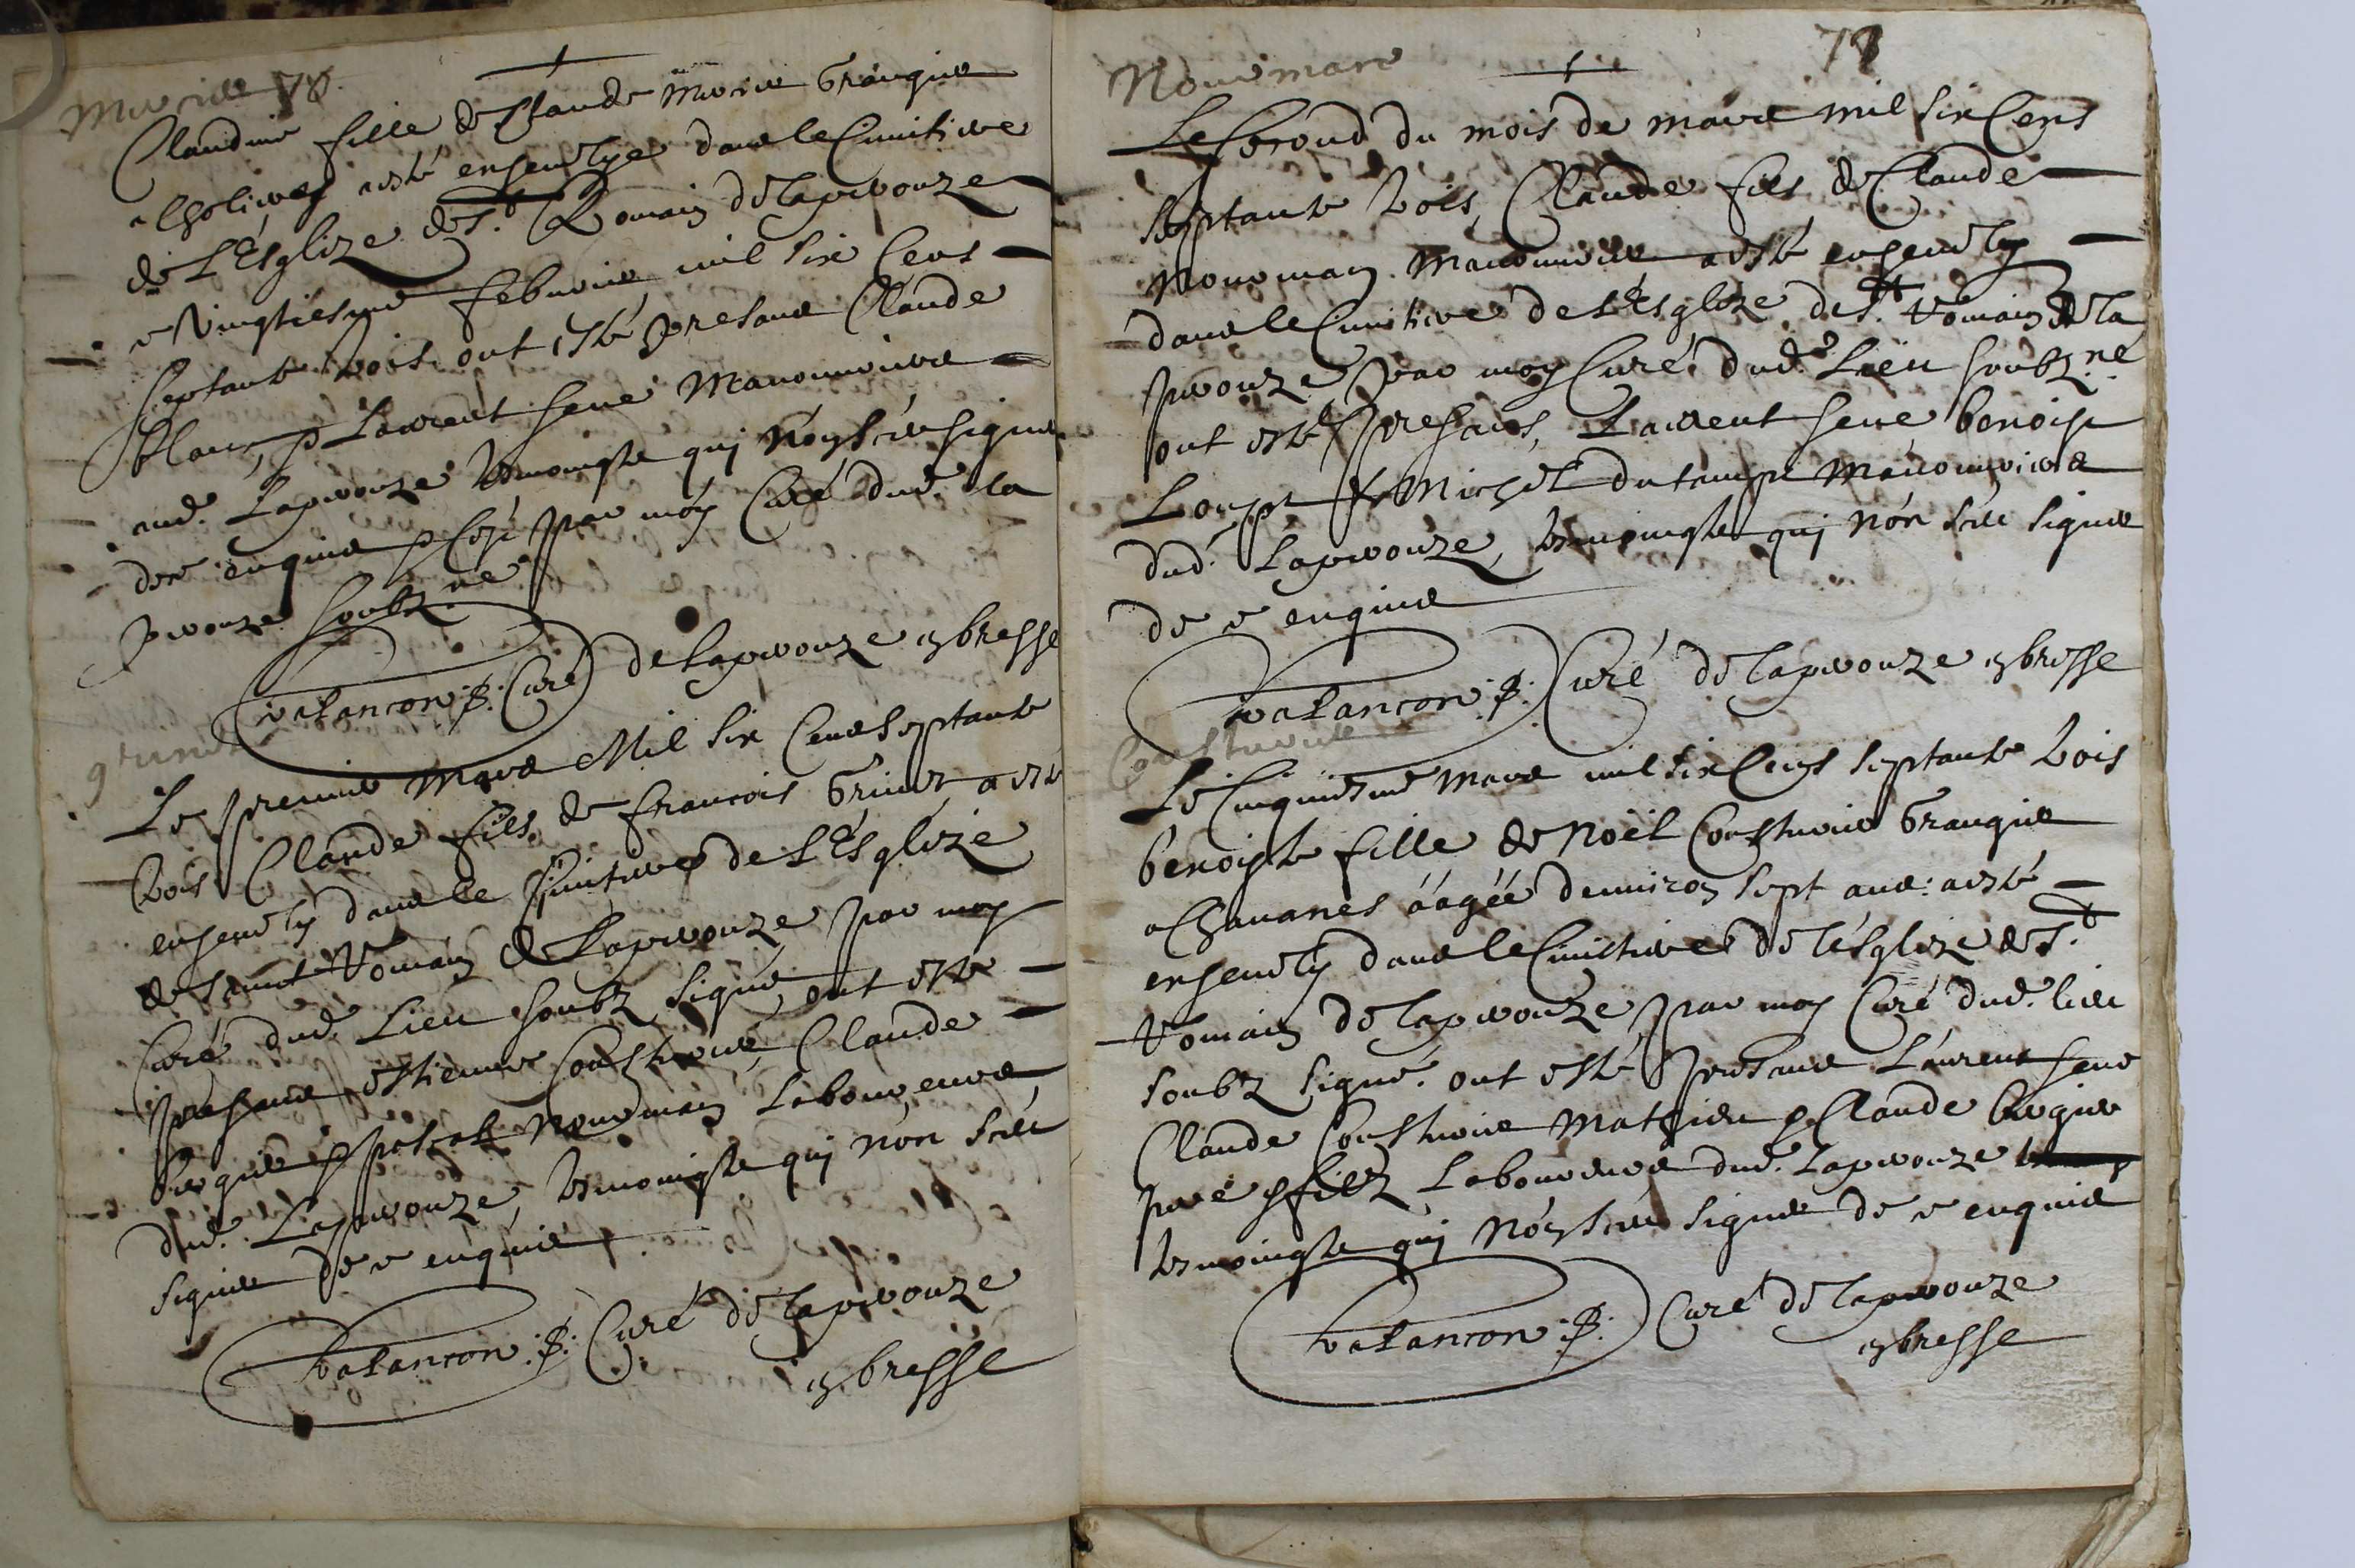 78.
Claudine fille de Claude Grangier
a esté ensevelye dans le Cimitiere
de L'Esglize de S.t Romain de Laperouze
le vingtiesme febvrier mil six Cens
septante trois ont esté presans Claude
blanc, & Laurent seve Manouvriers
dud. Laperouze tesmoingtz qui n'ont sceu signer
de ce enquis & Ce par moy Curé dud. la
perouze soubz.né
Valancon .p. Curé de Laperouze en bresse
Le premier Mars Mil six Cens septante
trois Claude fils de francois Grines a esté
ensevely dans le Cimitiere de L'Esglize
de saint Romain de Laperouze par moy
Curé dud. Lieu soubz signé, ont esté
presans estienne Cousturier, Claude
& Nouvemain Laboureurs
dud. Laperouze, tesmoingtz qui n'on sceu
signer de ce enquis
Valancon .p. Curé de Laperouze
en bresse
78
Le second du mois de mars mil six Cens
septante trois, Claude fils de Claude
Nouvemain Manouvrier a esté ensevely
dans le Cimitiere de L'Esglize de S.t Romain de la
perouze, par moy Curé dud. Lieu soubz.né
ont esté presans, Laurent seve benoist
Loup & Michel dutemps Manouvriers
dud. Laperouze, tesmoingtz qui n'on sceu signer
de ce enquis
Valancon .p. Curé de Laperouze en bresse
Cousturier
Le Cinquiesme Mars mil six Cens septante trois
benoiste fille de Noël Cousturier Grangier
a Chavanes aagée d'environ sept ans a esté
ensevely dans le Cimitiere de l'Esglize de S.t
Romain de Laperouze par moy Curé dud. lieu
soubz signé. ont esté presans Laurent seve
Claude Cousturier Mathieu & Claude
pere & filz Laboureurs dud. Laperouze
tesmoingtz qui n'on sceu signer de ce enquis
Valancon .p. Curé de Laperouze
en bresse